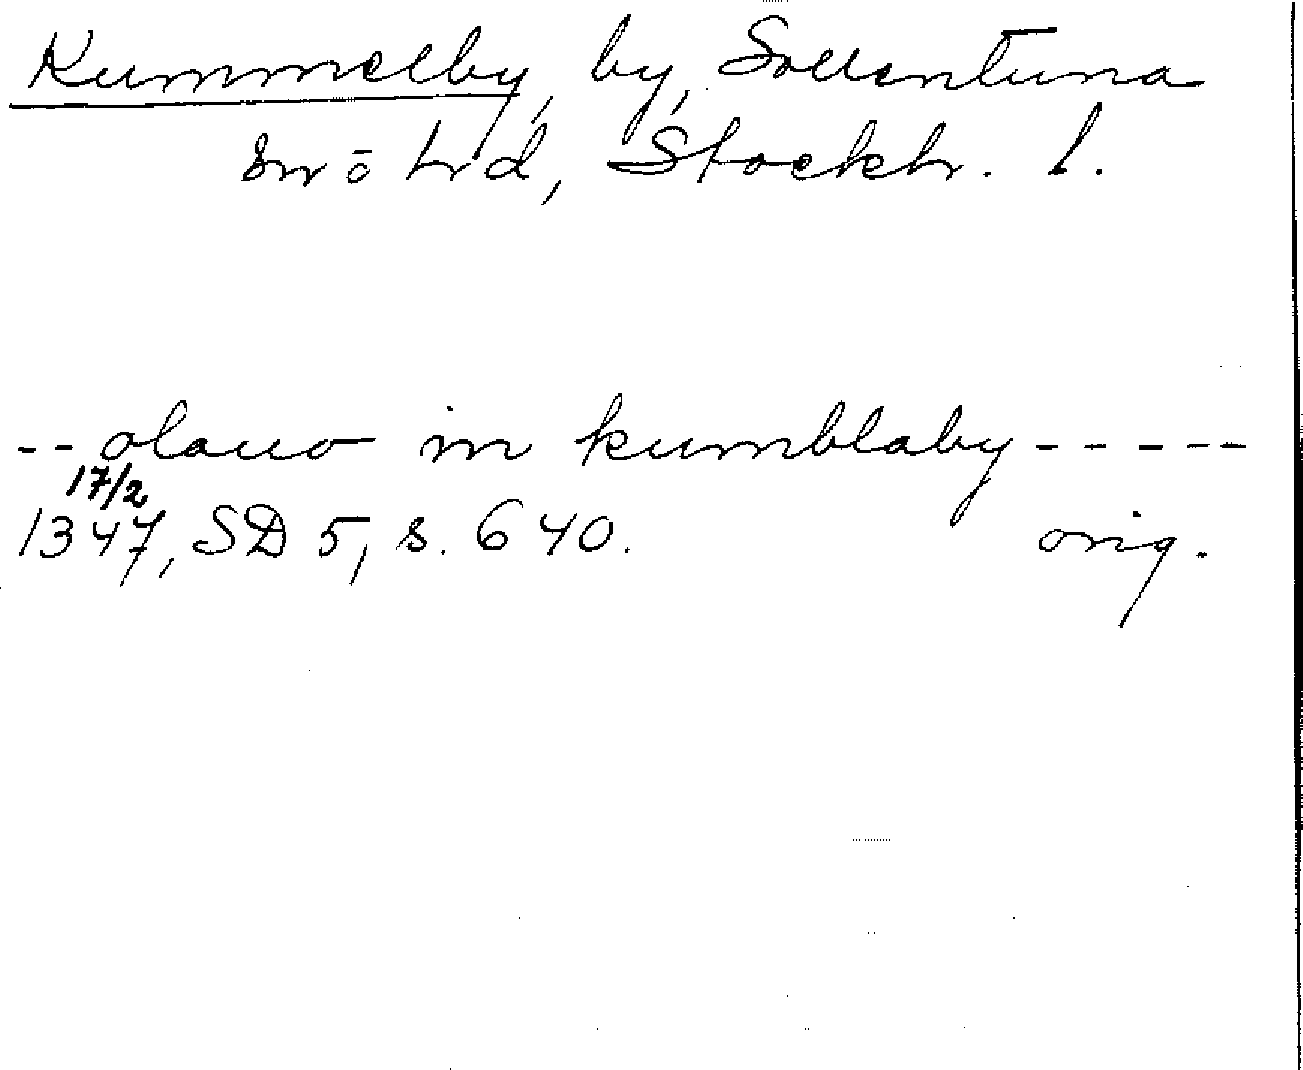 Kummelby, by, Sollentuna
sn o hd, Stockh. l.
-- olauo in kumblaby -----
17/2
1347, SD 5, s. 640. orig.